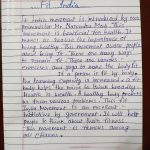 Fit India
Fit India movement is introduced by our
Prime Minister Mr. Narendra Modi. This
movement is beneficial for health. It
tells us to realise the importance of
being healthy. This movement aware people
about being fit. There are many ways
to remain fit. There are various
exercises and yoga to make the body fit.
If a person is fit by body
the learning capacity is increased and the
body helps the mind to be broadly
health is wealth. A healthy body protects
us from various problems. This Fit
India Movement is an excellent
initiative by government. It will help
people to think about their fitness.
This movement is famous among
all